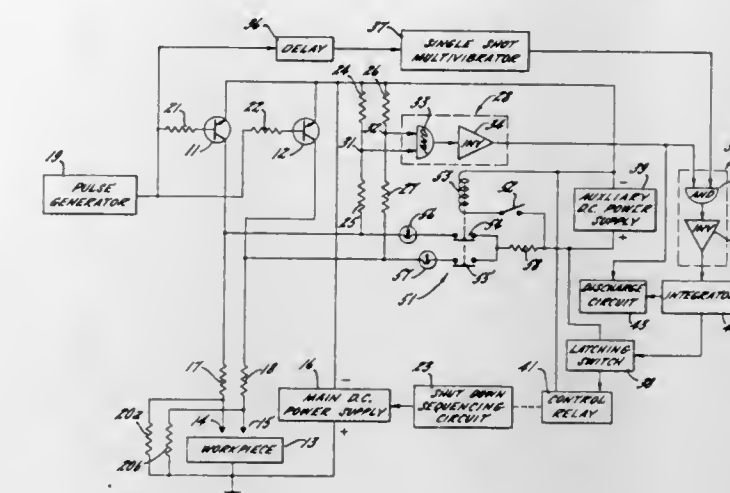 36
DELAY
37
SINGLE SHOT
MULTIVIBRATOR
24
26
28
21
22
11
12
32
31
33
AND
34
INV
19
PULSE
GENERATOR
53
52
39
AUXLIARY
D.C. POWER
SUPPLY
AND
INV
25
27
56
54
57
55
58
51
DISCHARGE
CIRCUIT
43
INTEGRATOR
LATCHING
SWITCH
38
17
18
16
MAIN D.C.
POWER SUPPLY
23
SHUT DOWN
SEQUENCING
CIRCUIT
41
CONTROL
RELAY
20a
20b
14
15
13
WORKPIECE